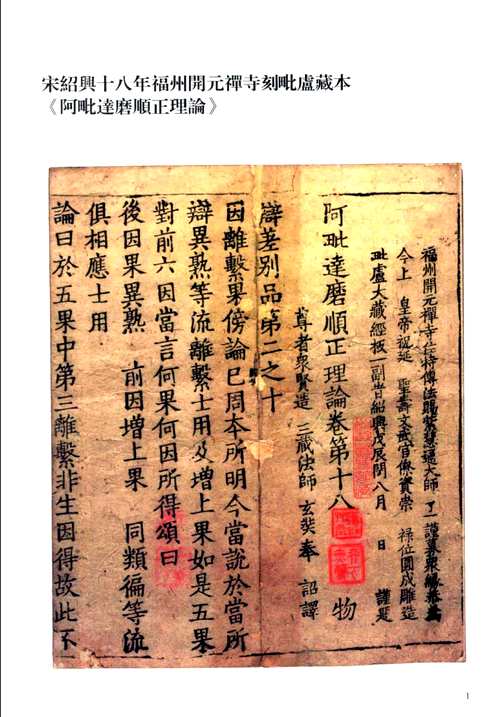 宋紹興十八年福州開元禪寺刻毗盧藏本
《阿毗達磨順正理論》
福州開元禪寺住持傳法賜紫慧通大師了一謹募衆緣恭爲
今上皇帝祝延聖壽文武官僚資崇祿位圓成雕造
毗盧大藏經板一副旹紹興戊辰閏八月日謹題
阿毗達磨順正理論卷第十八 物
尊者衆賢造 三藏法師玄奘奉 詔譯
辯差別品第二之十
因離繫果傍論已周本所明今當說於當所
辯異熟等流離繫士用及增上果如是五果
對前六因當言何果何因所得頌曰
後因果異熟 前因增上果 同類徧等流
俱相應士用
論曰於五果中第三離繫非生因得故此不
1